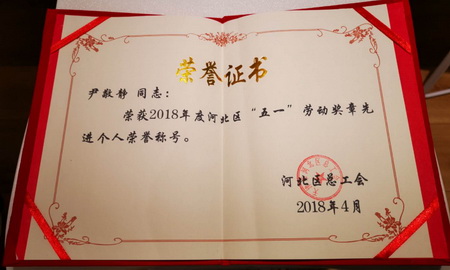 荣誉证书
尹敬静 同志：
荣获2018年度河北区“五一”劳动奖章先
进个人荣誉称号。
河北区总工会
2018年4月